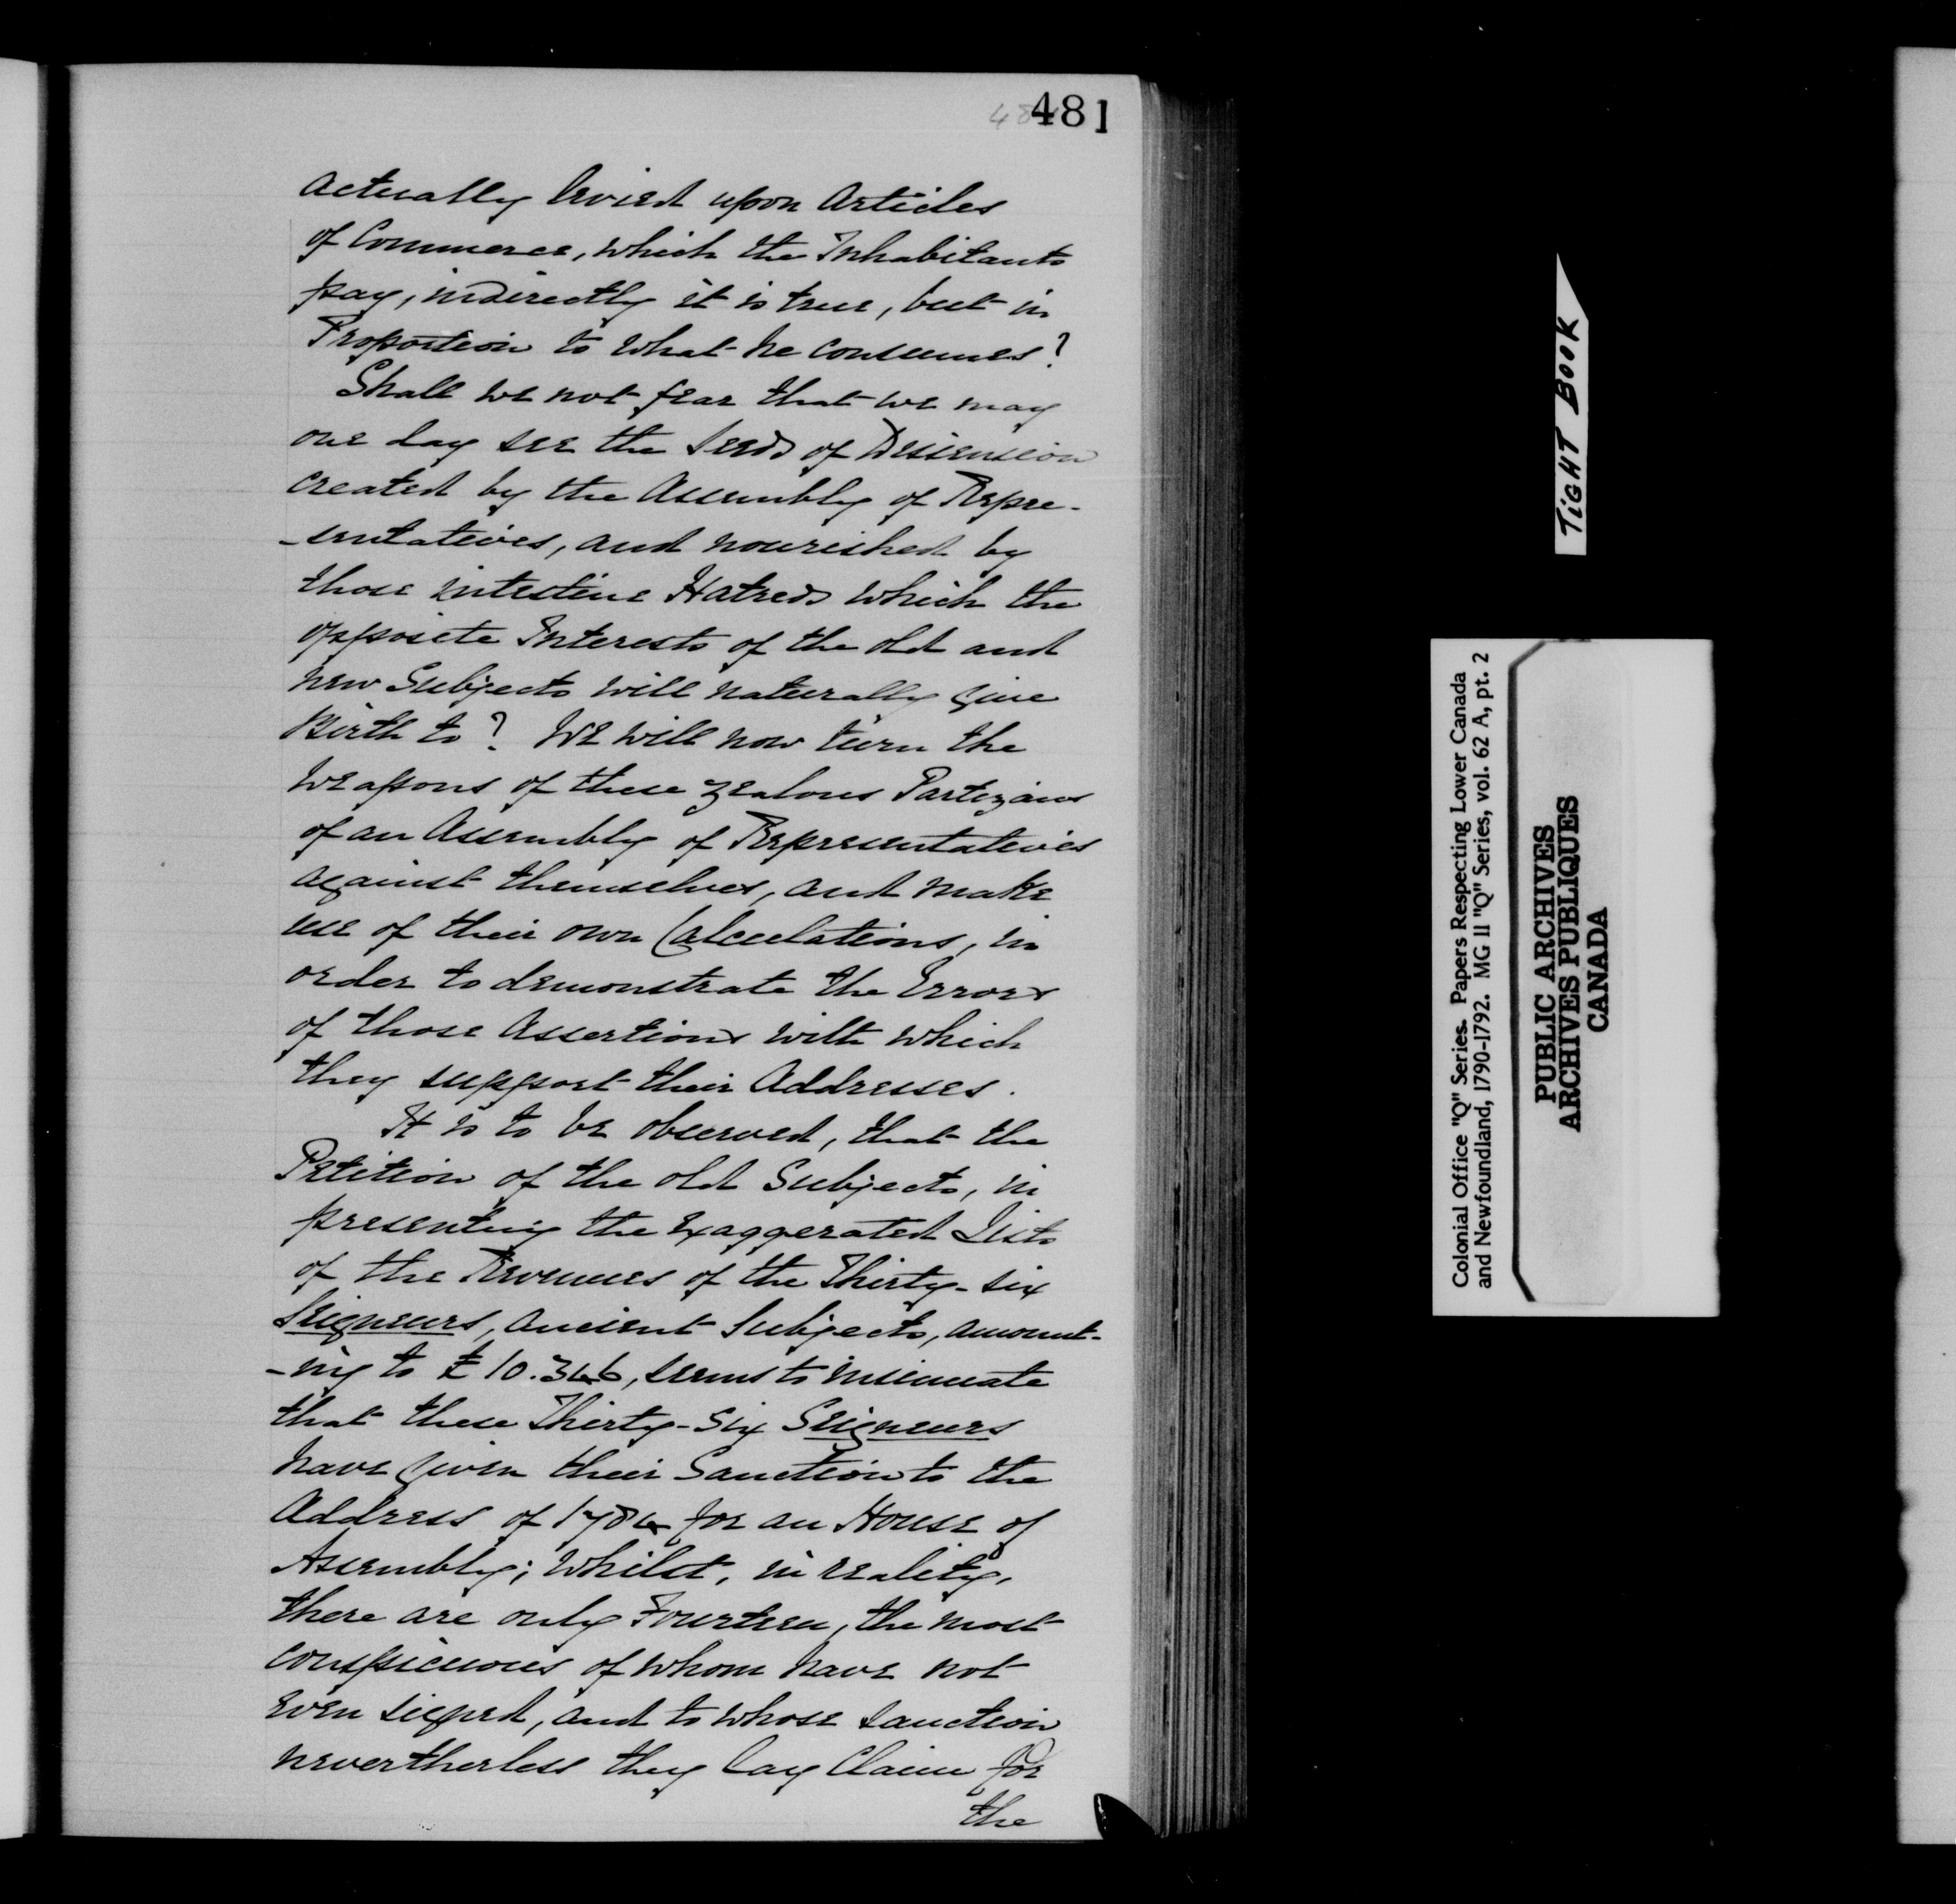 481
actually levied upon Articles
of Commerce, which the Inhabitants
pay, indirectly it is true, but in
Proportion to what he consumes?
Shall we not fear that we may
one day see the Seeds of Dissension
created by the Assembly of Repre-
-sentatives, and nourished by
those intestine Hatreds which the
opposite Interests of the old and
new Subjects will naturally give
Birth to? We will now turn the
weapons of these zealous Partizans
of an Assembly of Representatives
against themselves, and make
use of their own Calculations, in
order to demonstrate the Errors
of those Assertions with which
they support their Addresses.
It is to be observed, that the
Petition of the old Subjects, in
presenting the exaggerated Lists
of the Revenues of the Thirty-six
Seigneurs, ancient Subjects, amount-
-ing to £10.346, seems to insinuate
that these Thirty-Six Seigneurs
have given their Sanction to the
Address of 1784 for an House of
Assembly; whilst, in reality,
there are only Fourteen, the most
conspicuous of whom have not
even signed, and to whose Sanction
nevertherless they lay Claim for
the
TIGHT BOOK
Colonial Office "Q" Series. Papers Respecting Lower Canada
and Newfoundland, 1790-1792. MG 11 "Q" Series, vol. 62 A, pt. 2
PUBLIC ARCHIVES
ARCHIVES PUBLIQUES
CANADA